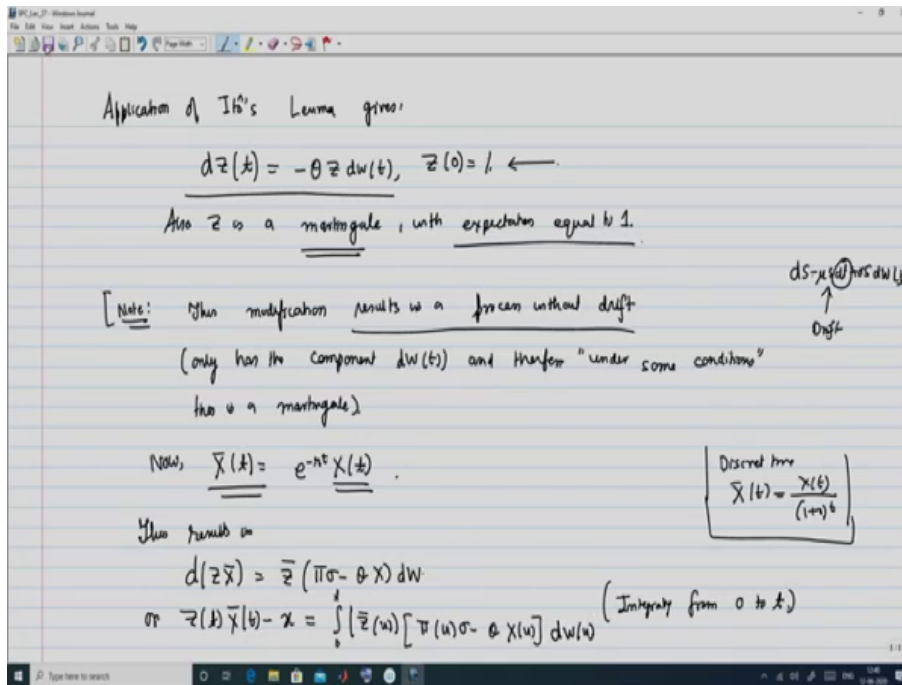 SPC_Lec_27 - Windows Journal
File Edit View Insert Actions Tools Help
Page Width
Application of Itô's Lemma gives:
dZ(t) = -θ Z dW(t), Z(0) = 1. ←
Also Z is a martingale, with expectation equal to 1.
dS = μS dt + σS dW(t)
↑
Drift
[Note: This modification results in a process without drift
(only has the component dW(t)) and therefore "under some conditions"
this is a martingale).
Now, X̄(t) = e^{-rt} X(t).
Discrete time
X̄(t) = X(t) / (1+r)^t
This results in
d(ZX̄) = Z̄ (Πσ - θX) dW.
or Z(t) X̄(t) - x = ∫_0^t (Z̄(u)) [π(u)σ - θ X(u)] dW(u) (Integrating from 0 to t.)
Type here to search
12-06-2020